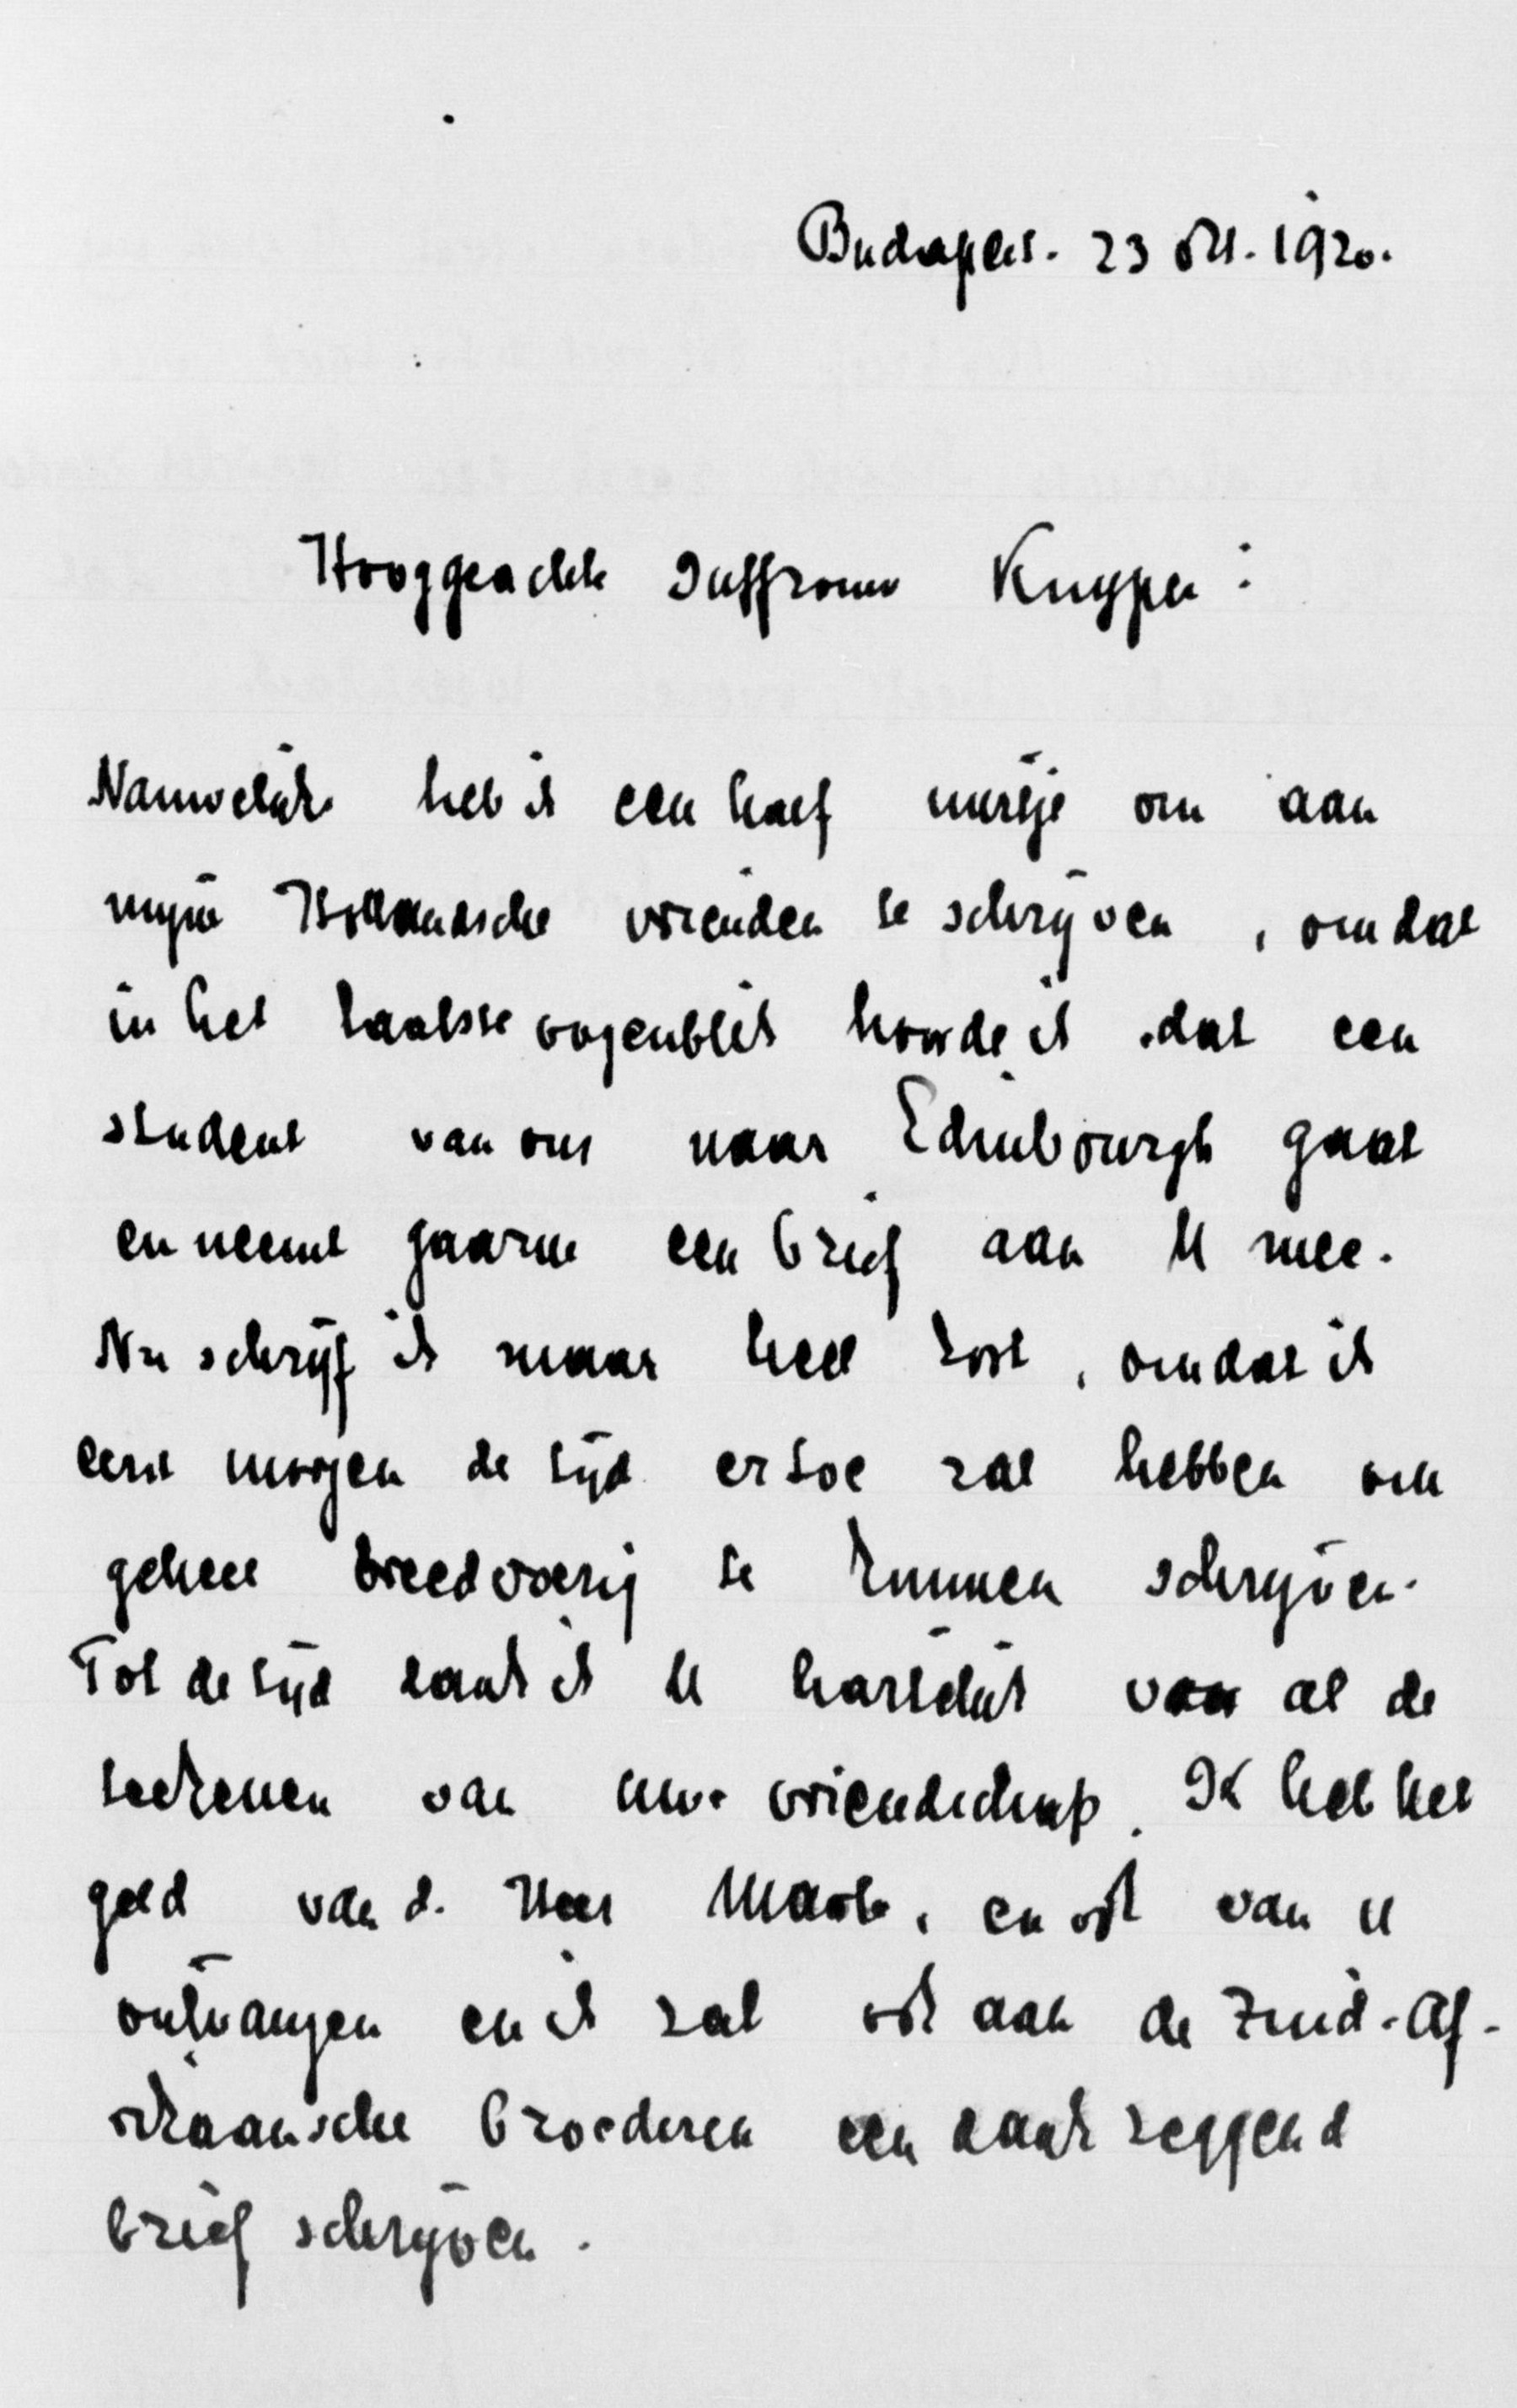 Budapest. 23 Okt. 1920.
Hooggeachte Juffrouw Kuyper:
Nauwelijks heb ik een half uurtje om aan
mijne Hollandsche vrienden te schrijven, omdat
in het laatste oogenblik hoorde ik dat een
student van ons naar Edinbourgh gaat
en neemt gaarne een brief aan U mee.
Nu schrijf ik maar heel kort, omdat ik
eerst morgen de tijd ertoe zal hebben om
geheel breedvoerig te kunnen schrijven.
Tot de tijd dank ik U hartelijk voor al de
teekenen van uwe vriendschap. Ik heb het
geld van d. Heer, en ook van U
ontvangen en ik zal ook aan de Zuid-Af-
rikaansche broederen een dankzeggend
brief schrijven.